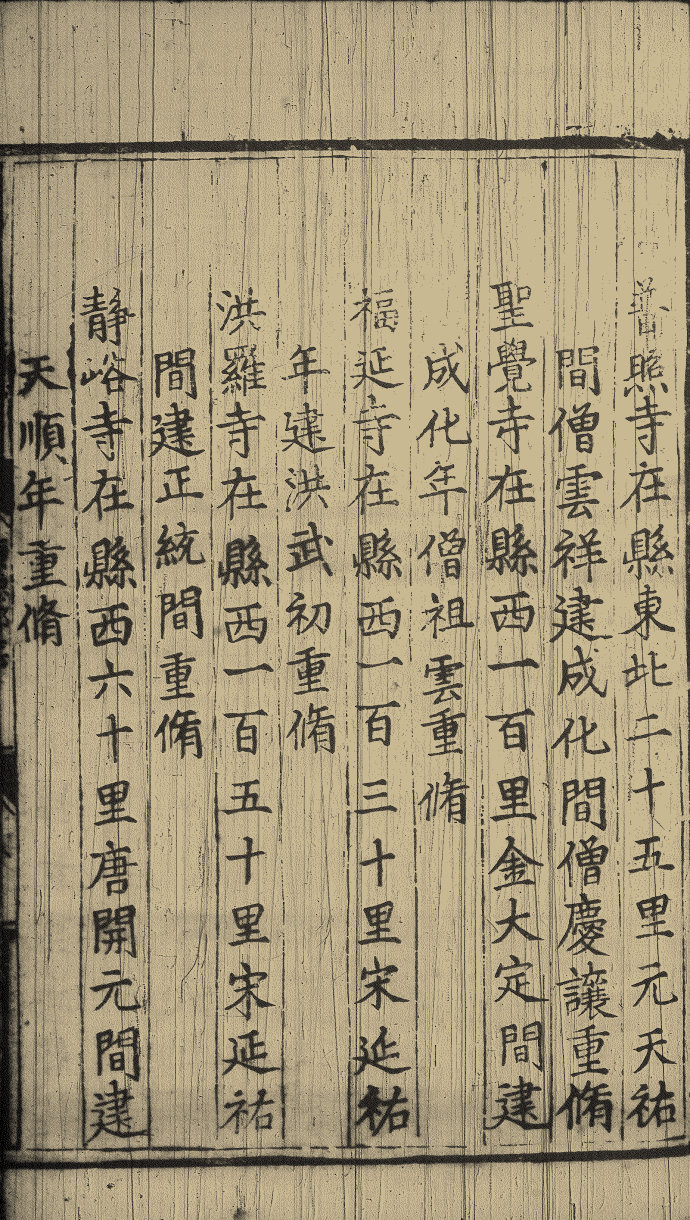 普照寺在縣東北二十五里元天祐
間僧雲祥建成化間僧慶讓重脩
聖覺寺在縣西一百里金大定間建
成化年僧祖雲重脩
福延寺在縣西一百三十里宋延祐
年建洪武初重脩
洪羅寺在縣西一百五十里宋延祐
間建正統間重脩
静峪寺在縣西六十里唐開元間建
天順年重脩